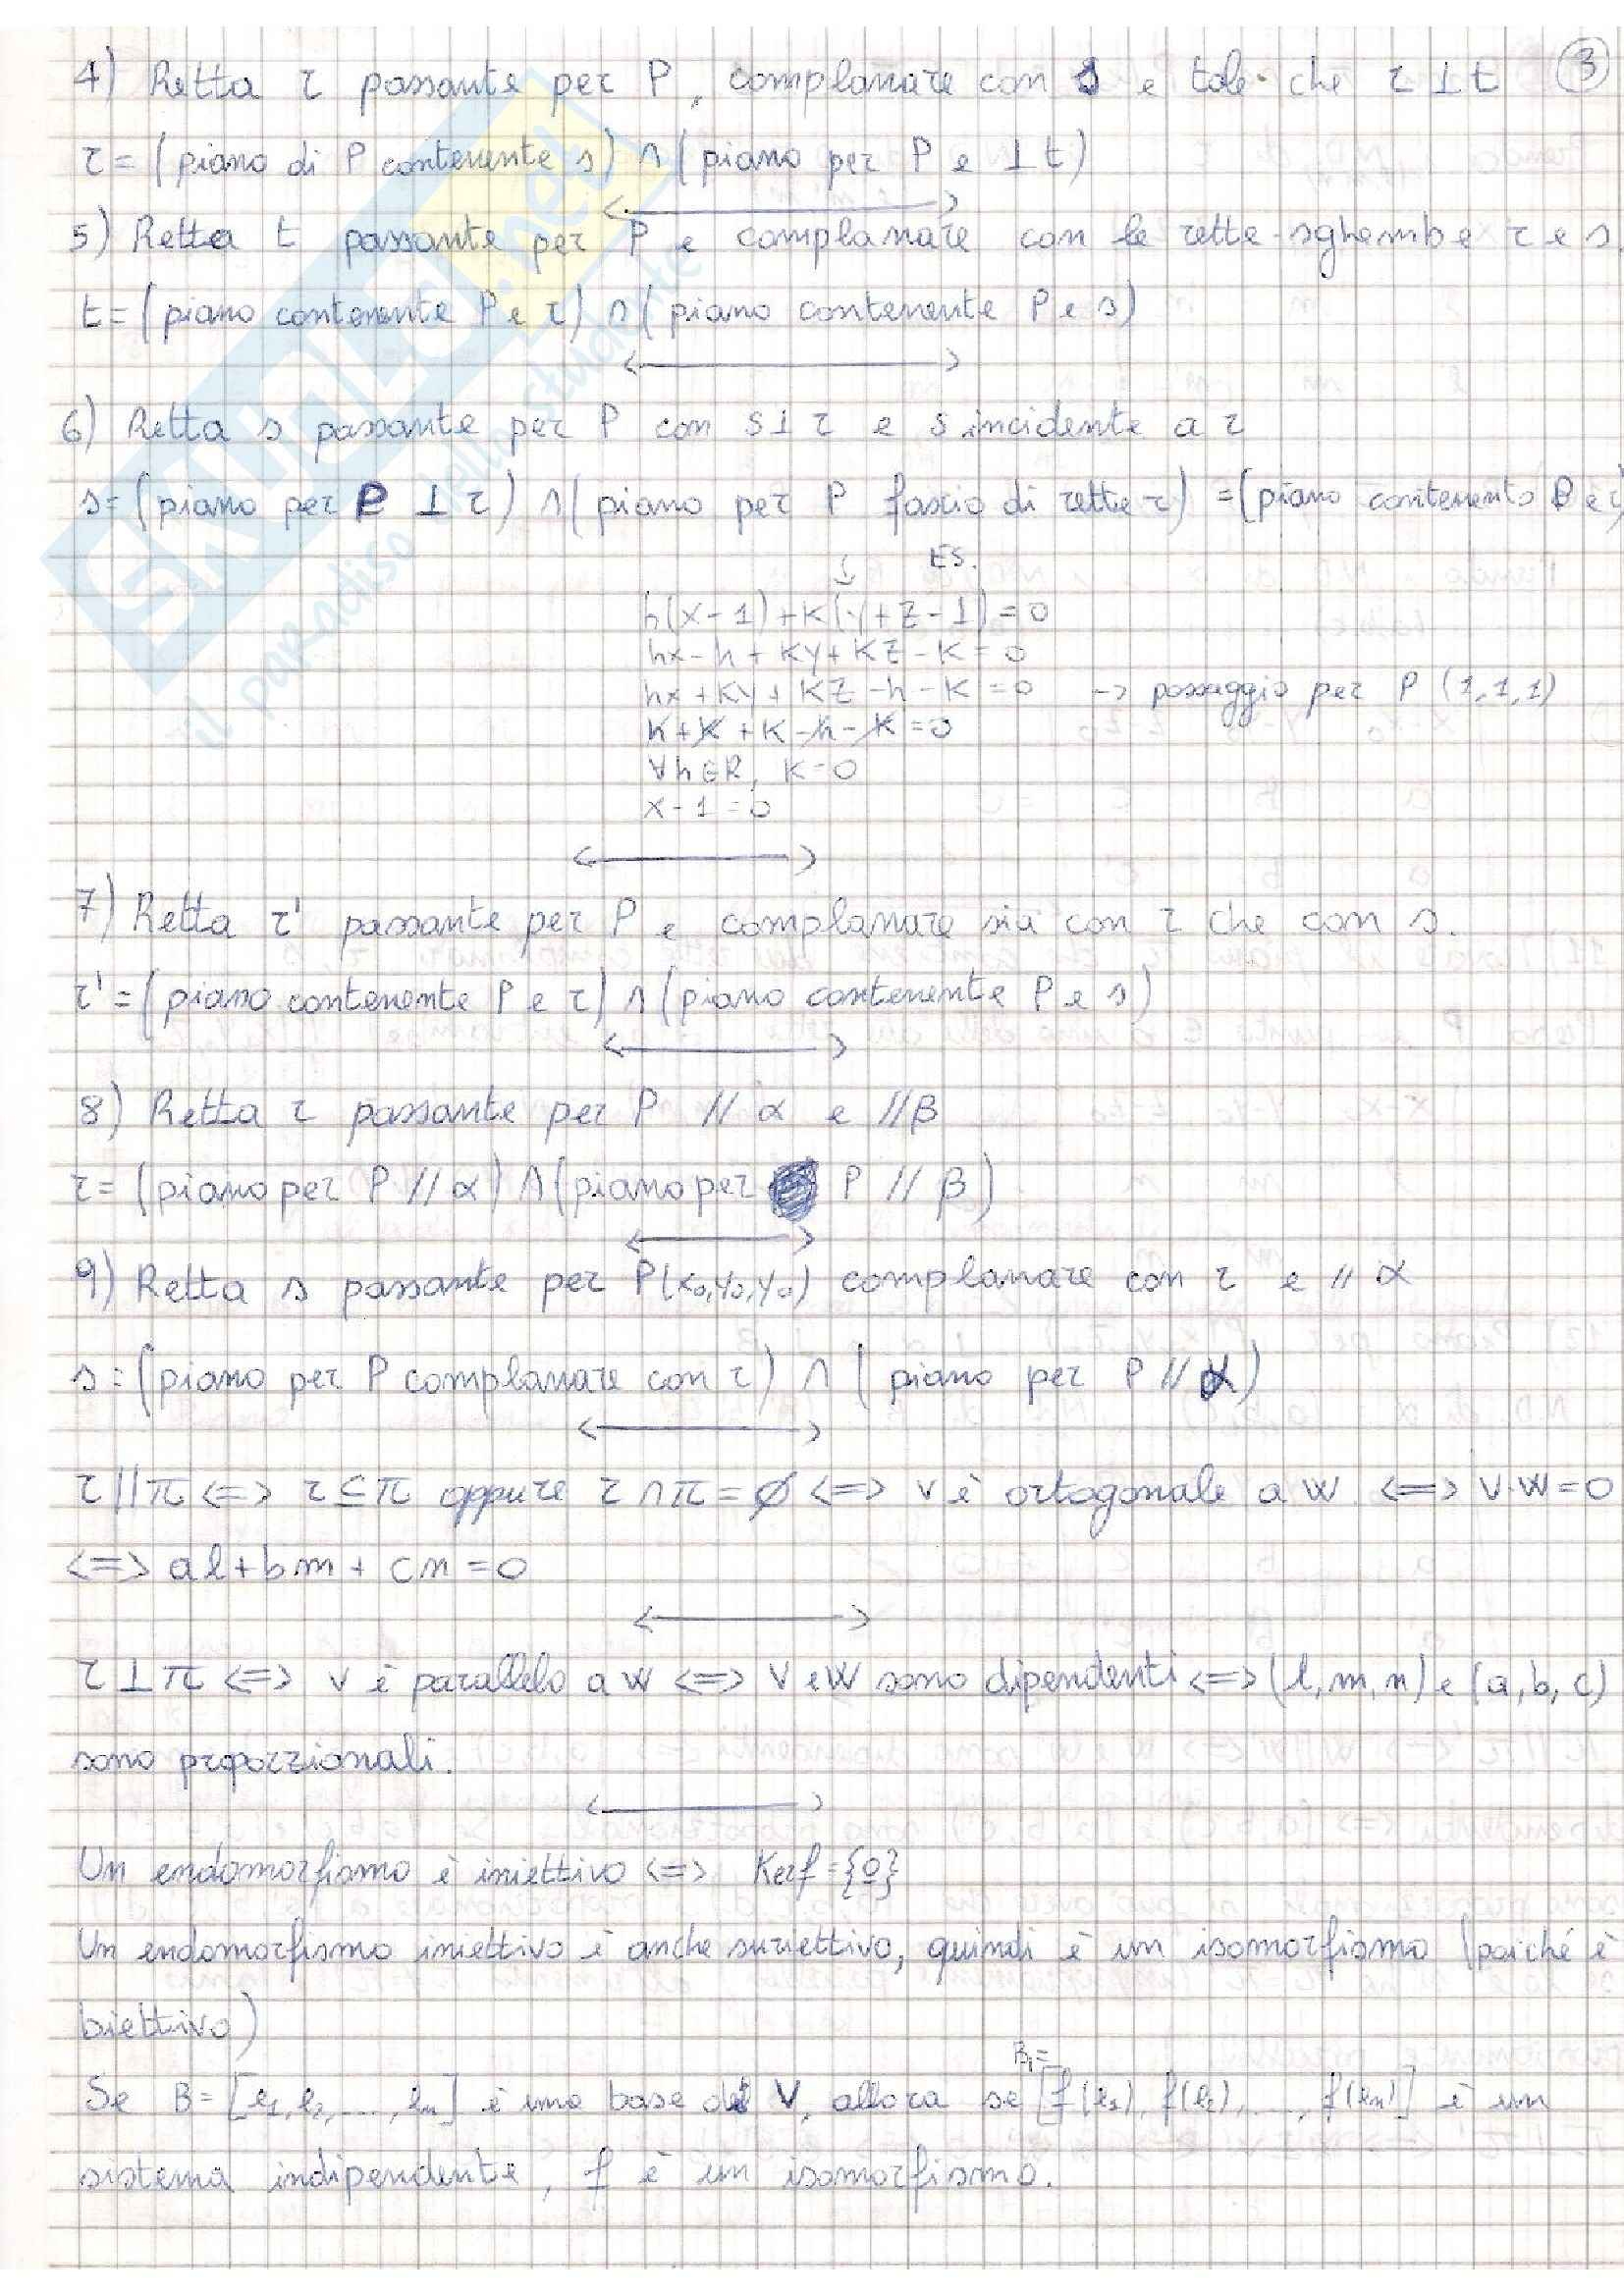 4) Retta r passante per P, complanare con s e tale che r ⊥ t ③
r = (piano di P contenente s) ∩ (piano per P e ⊥ t)
5) Retta t passante per P e complanare con le rette sghembe r e s
t = (piano contenente P e r) ∩ (piano contenente P e s)
6) Retta s passante per P con s ⊥ r e s incidente a r
s = (piano per P ⊥ r) ∩ (piano per P fascio di rette r) = (piano contenento P e r)
ES.
h(x-1)+K(y+z-1)=0
hx-h+Ky+KZ-K=0
hx+Ky+KZ-h-K=0 → passaggio per P (1,1,1)
h+K+K-h-K=0
∀h∈R, K=0
x-1=0
7) Retta r' passante per P e complanare sia con r che con s.
r' = (piano contenente P e r) ∩ (piano contenente P e s)
8) Retta r passante per P // α e // β
r = (piano per P // α) ∩ (piano per P // β)
9) Retta s passante per P(x₀,y₀,y₀) complanare con r e // α
s = (piano per P complanare con r) ∩ (piano per P // α)
r // π <=> r ⊆ π oppure r ∩ π = ∅ <=> v è ortogonale a w <=> v·w=0
<=> al+bm+cn=0
r ⊥ π <=> v è parallelo a w <=> v e w sono dipendenti <=> (l,m,n) e (a,b,c)
sono proporzionali.
Un endomorfismo è iniettivo <=> Kerf={0}
Un endomorfismo iniettivo è anche suriettivo, quindi è un isomorfismo (poiché è
biettivo)
B₁=
Se B=[e₁,e₂,...,en] è una base di V, allora se [f(e₁), f(e₂),..., f(en)] è un
sistema indipendente, f è un isomorfismo.
SKUOLA.net
il paradiso dello studente